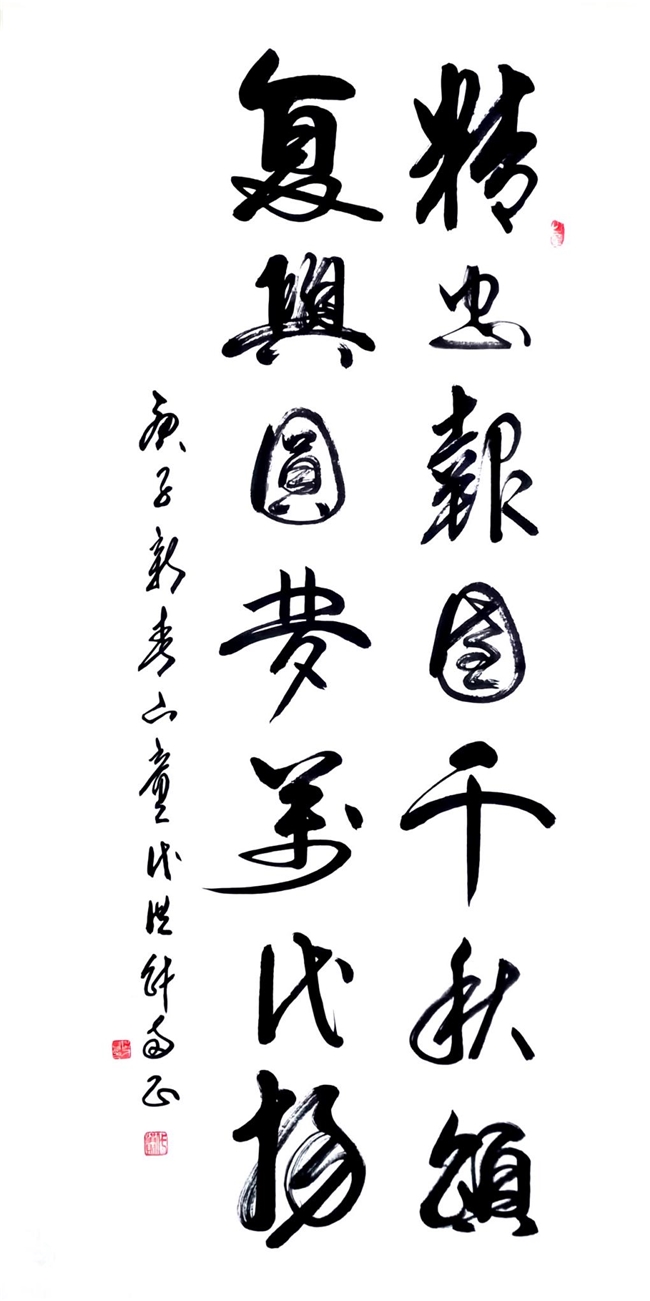 精忠報國千秋頌
复興圓夢萬代揚
庚子新春山童代洪科書正